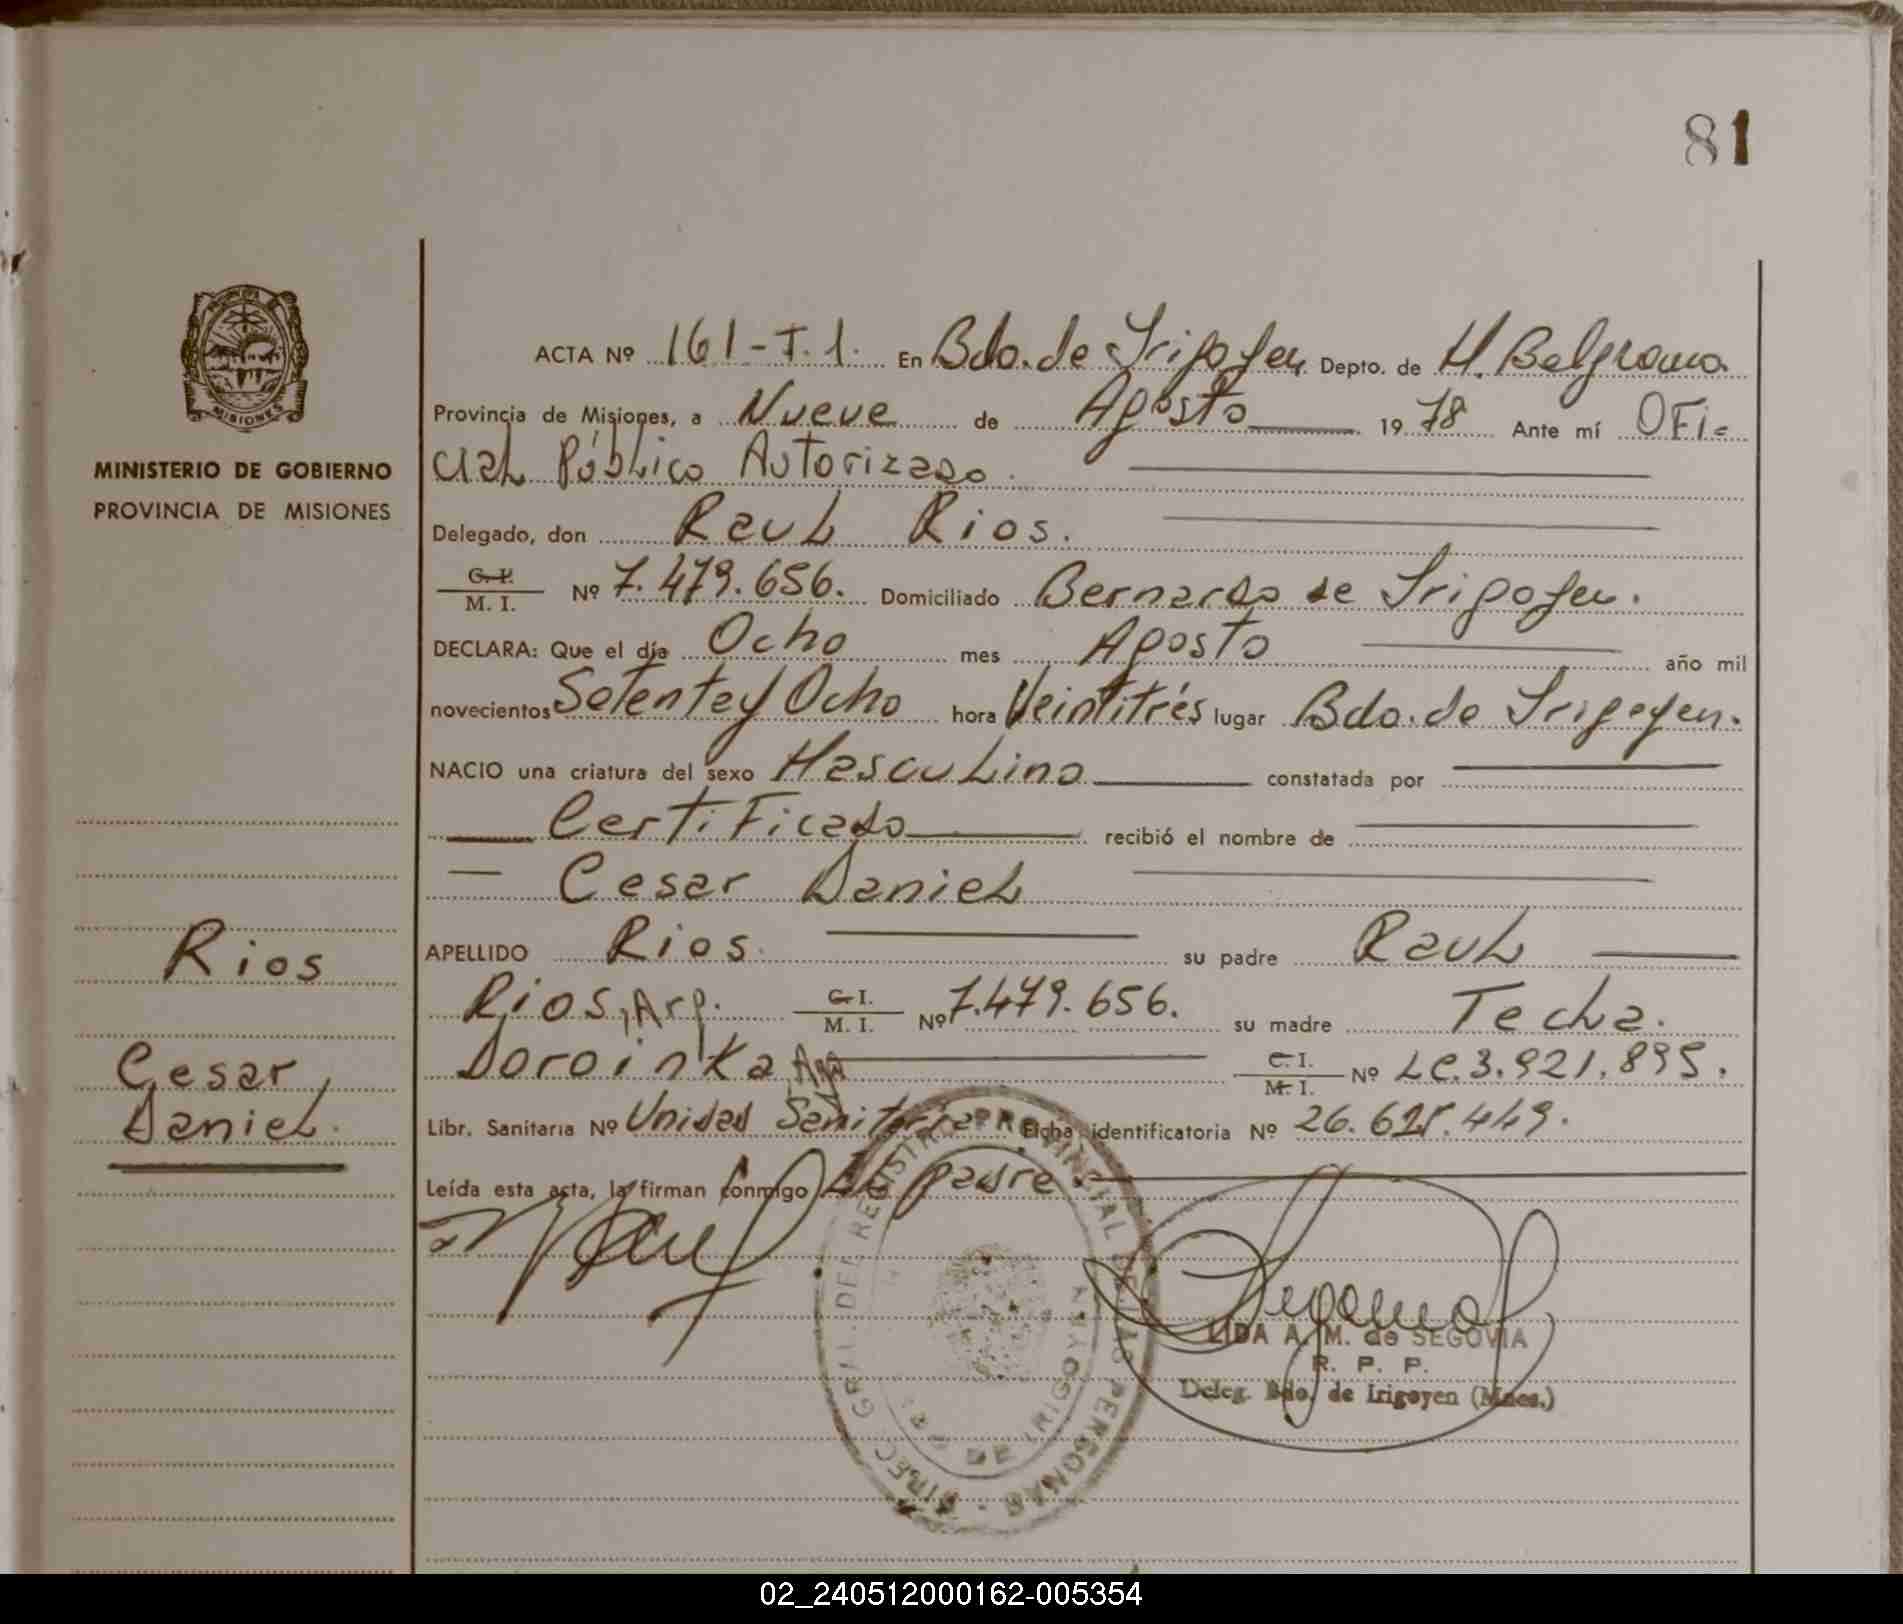 81
MISIONES
MINISTERIO DE GOBIERNO
PROVINCIA DE MISIONES
Rios
Cesar
Daniel.
ACTA Nº 161-T.1. En Bdo. de Irigoyen. Depto. de Belgrano
Provincia de Misiones, a Nueve de Agosto 1978 Ante mí OFi-
cial Público Autorizado.
Delegado, don Raul Rios.
C. I.
M. I. Nº 7.479.656. Domiciliado Bernardo de Irigoyen.
DECLARA: Que el día Ocho mes Agosto año mil
novecientos Setenta y Ocho hora Veintitrés lugar Bdo. de Irigoyen.
NACIO una criatura del sexo Masculino constatada por
Certificado recibió el nombre de
Cesar Daniel
APELLIDO Rios. su padre Raul
Rios, Arg. C. I.
M. I. Nº 7.479.656. su madre Tecla.
Doroinka Arg C. I.
M. I. Nº LC. 3.921.895.
Libr. Sanitaria Nº Unidad Sanitaria Ficha identificatoria Nº 26.449.
Leída esta acta, la firman conmigo padre.
DIREC. GRAL. DEL REGISTRO PROVINCIAL DE LAS PERSONAS
DE IRIGOYEN
LIDA A. M. de SEGOVIA
R. P. P.
Deleg. Bdo. de Irigoyen (Mnes.)
02_240512000162-005354